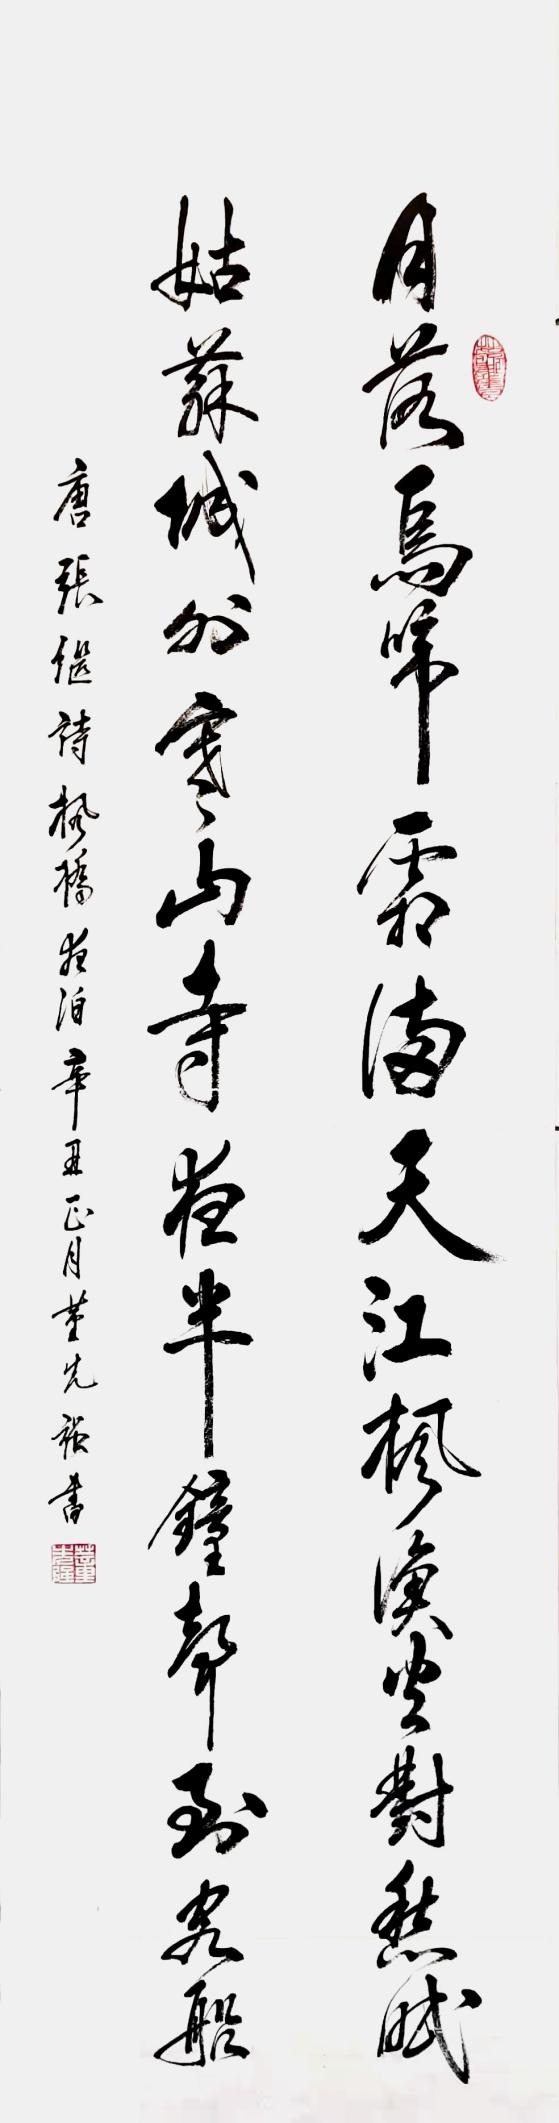 月落烏啼霜滿天江楓漁火對愁眠
姑蘇城外寒山寺夜半鐘聲到客船
唐張繼詩楓橋夜泊辛丑正月董先強書
董先強